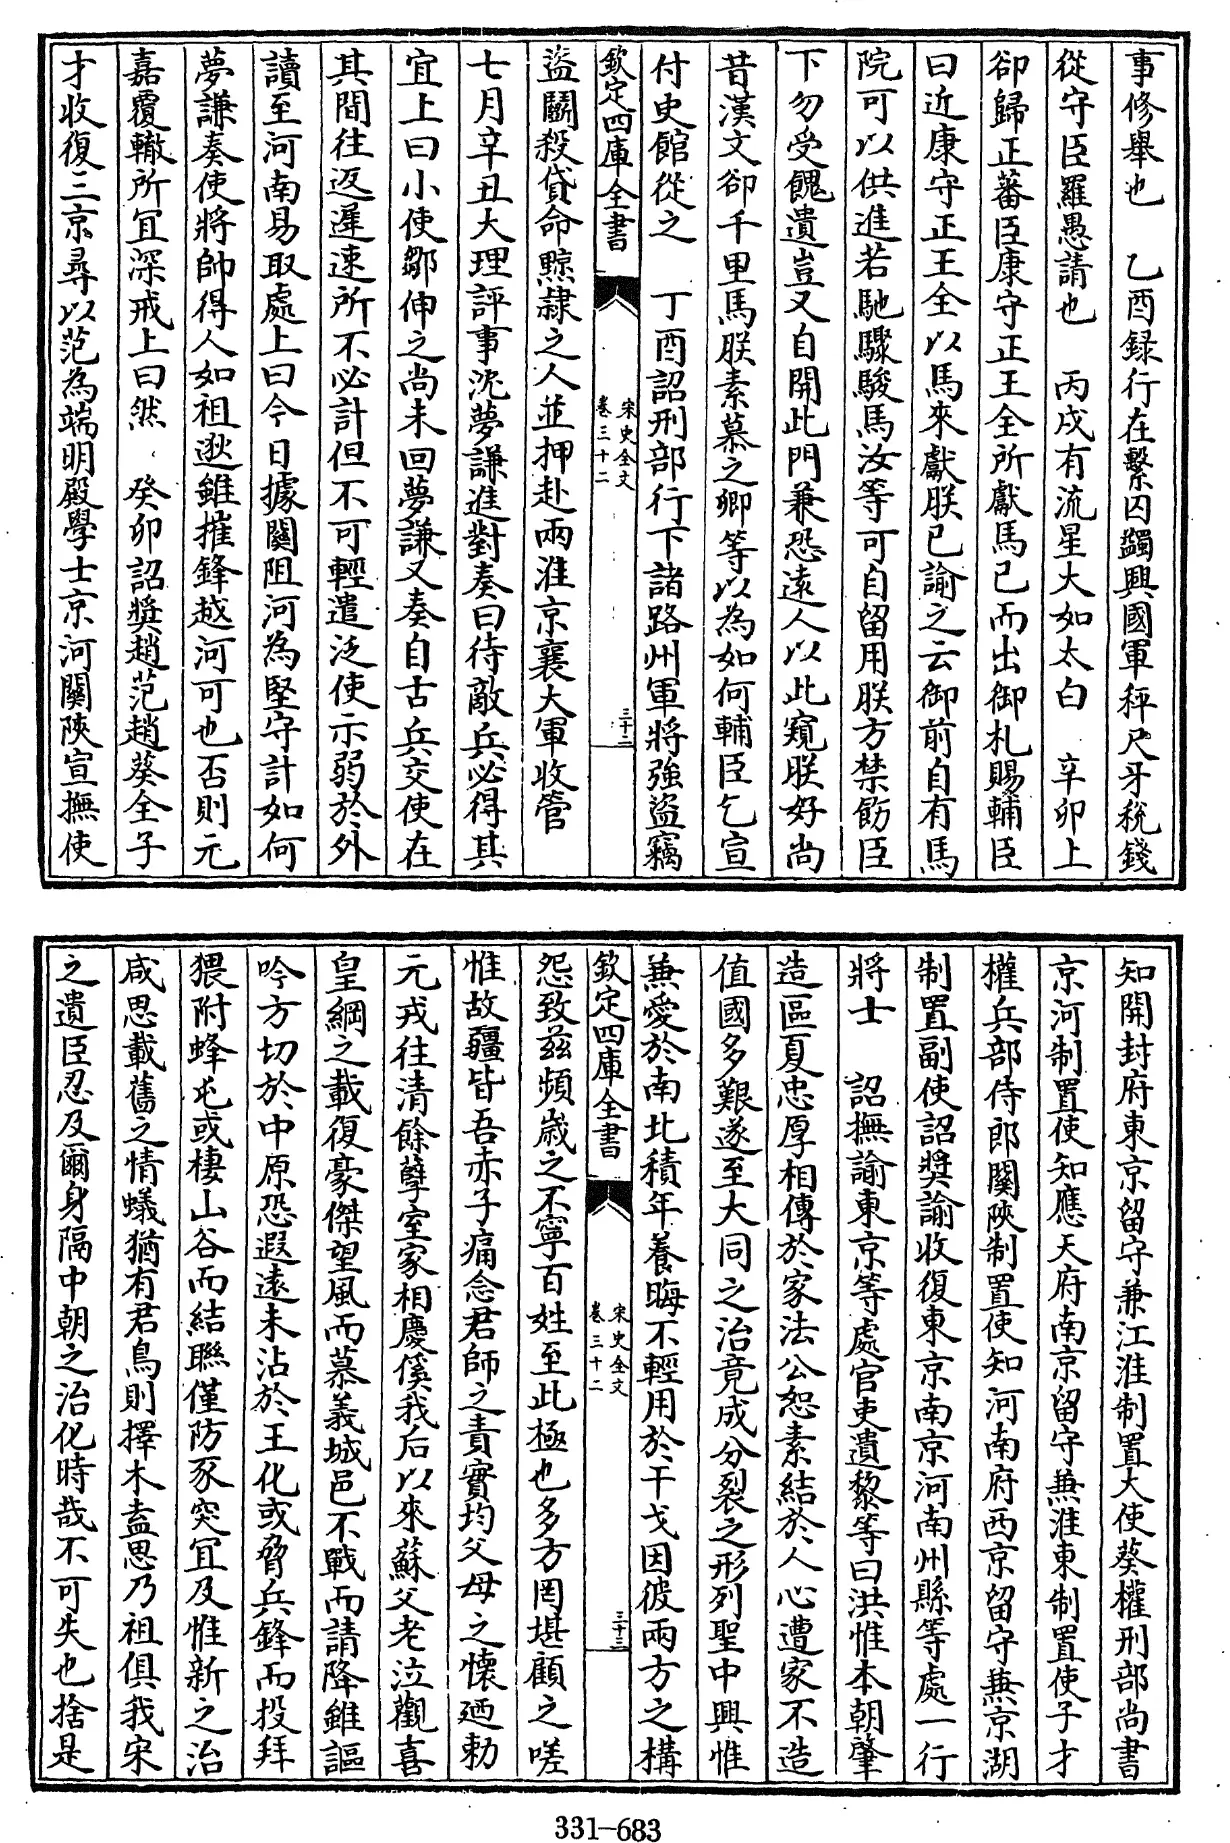 事修舉也　乙酉録行在繫囚蠲興國軍秤尺牙税錢
從守臣羅愚請也　丙戌有流星大如太白　辛卯上
卻歸正蕃臣康守正王全所獻馬已而出御札賜輔臣
曰近康守正王全以馬來獻朕已諭之云御前自有馬
院可以供進若馳驟駿馬汝等可自留用朕方禁飭臣
下勿受餽遺豈又自開此門兼恐遠人以此窺朕好尚
昔漢文卻千里馬朕素慕之卿等以為如何輔臣乞宣
付史館從之　丁酉詔刑部行下諸路州軍將強盜竊
欽定四庫全書
宋史全文
卷三十二
三十二
盜鬭殺貸命黥隷之人並押赴兩淮京襄大軍收管
七月辛丑大理評事沈夢謙進對奏曰待敵兵必得其
宜上曰小使鄒伸之尚未回夢謙又奏自古兵交使在
其間往返遲速所不必計但不可輕遣泛使示弱於外
讀至河南易取處上曰今日據關阻河為堅守計如何
夢謙奏使將帥得人如祖逖雖摧鋒越河可也否則元
嘉覆轍所宜深戒上曰然　癸卯詔獎趙范趙葵全子
才收復三京尋以范為端明殿學士京河關陝宣撫使
知開封府東京留守兼江淮制置大使葵權刑部尚書
京河制置使知應天府南京留守兼淮東制置使子才
權兵部侍郎關陝制置使知河南府西京留守兼京湖
制置副使詔奬諭收復東京南京河南州縣等處一行
將士　詔撫諭東京等處官吏遺黎等曰洪惟本朝肇
造區夏忠厚相傳於家法公恕素結於人心遭家不造
值國多艱遂至大同之治竟成分裂之形列聖中興惟
兼愛於南北積年養晦不輕用於干戈因彼兩方之構
欽定四庫全書
宋史全文
卷三十二
三十三
怨致兹頻歳之不寧百姓至此極也多方罔堪顧之嗟
惟故疆皆吾赤子痛念君師之責實均父母之懷廼勅
元戎往清餘孽室家相慶傒我后以來蘇父老泣觀喜
皇綱之載復豪傑望風而慕義城邑不戰而請降雖謳
吟方切於中原恐遐遠未沾於王化或脅兵鋒而投拜
猥附蜂屯或棲山谷而結聯僅防豕突宜及惟新之治
咸思載舊之情蟻猶有君鳥則擇木盍思乃祖俱我宋
之遺臣忍及爾身隔中朝之治化時哉不可失也捨是
331-683